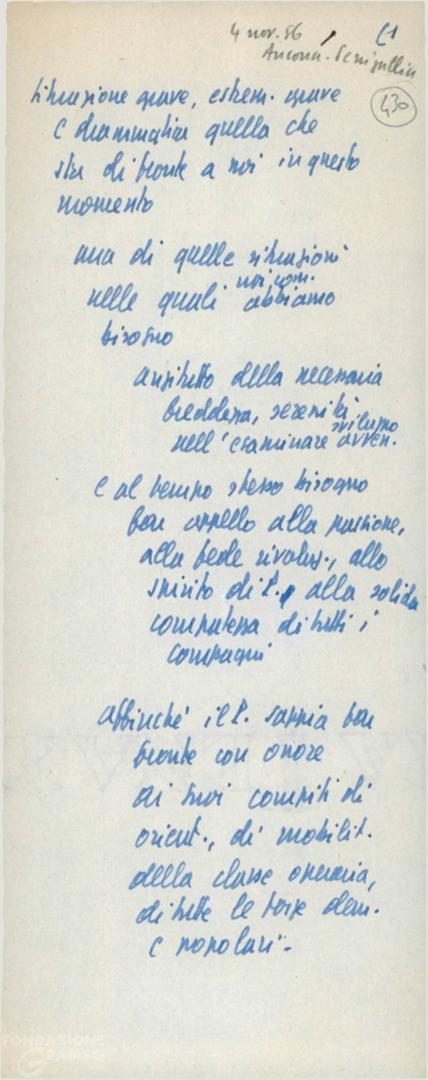 4 nov. 56 £1
Ancona - Senigallia
430
Situazione grave, estrem. grave
e drammatica quella che
sta di fronte a noi in questo
momento
una di quelle situazioni
noi com.
nelle quali abbiamo
bisogno
anzitutto della necessaria
freddezza, serenità
sviluppo
nell'esaminare avven.
e al tempo stesso bisogno
fare appello alla passione,
alla fede rivoluz., allo
spirito di P. alla solida
compattezza di tutti i
compagni
affinché il P. sappia fare
fronte con onore
ai suoi compiti di
orient., di mobilit.
della classe operaia,
di tutte le forze dem.
e popolari -
FONDAZIONE
GRAMSCI